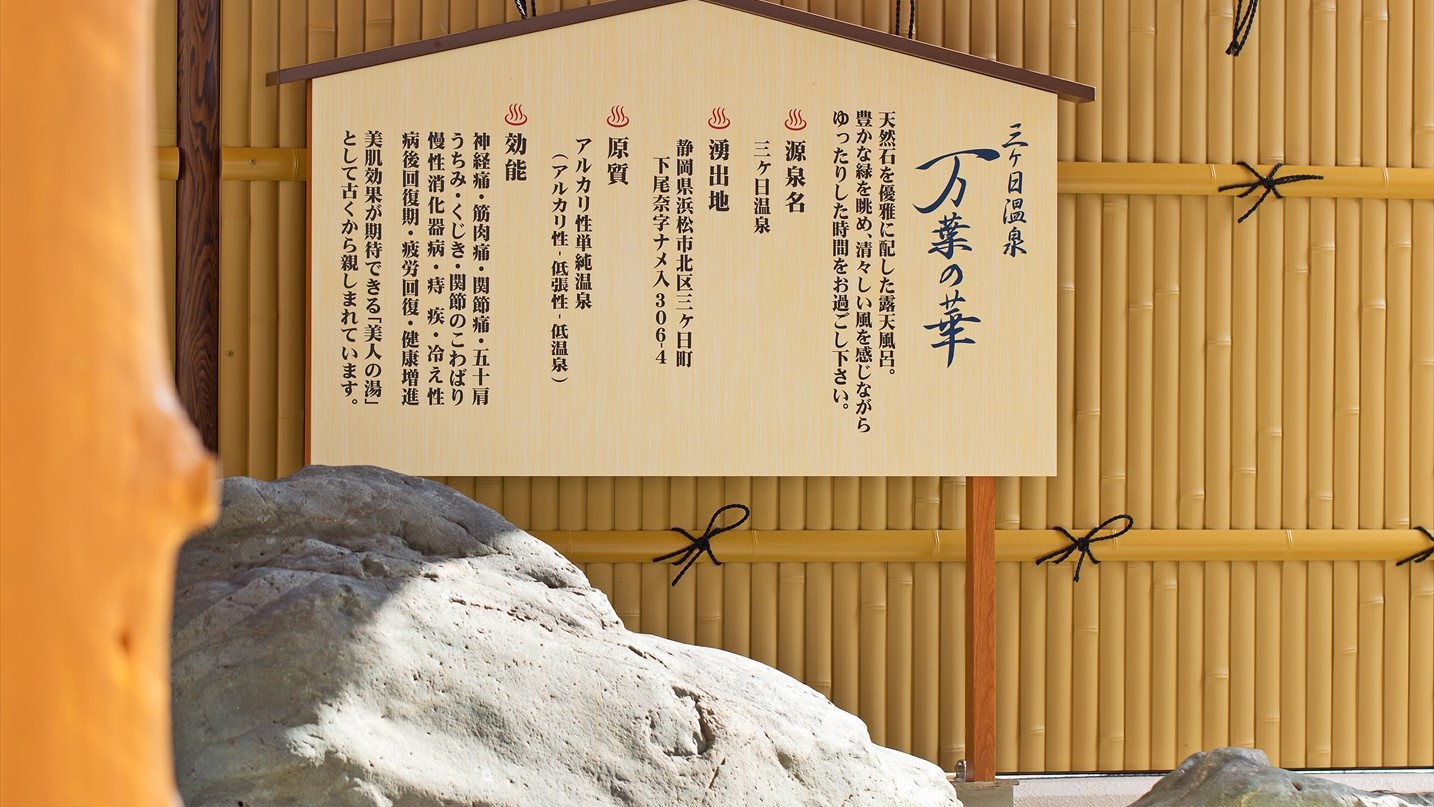 三ケ日温泉
万葉の華
天然石を優雅に配した露天風呂。
豊かな緑を眺め、清々しい風を感じながら
ゆったりした時間をお過ごし下さい。
源泉名
三ケ日温泉
湧出地
静岡県浜松市北区三ケ日町
下尾奈字ナメ入306-4
原質
アルカリ性単純温泉
(アルカリ性-低張性-低温泉)
効能
神経痛・筋肉痛・関節痛・五十肩
うちみ・くじき・関節のこわばり
慢性消化器病・痔 疾・冷え性
病後回復期・疲労回復・健康増進
美肌効果が期待できる「美人の湯」
として古くから親しまれています。